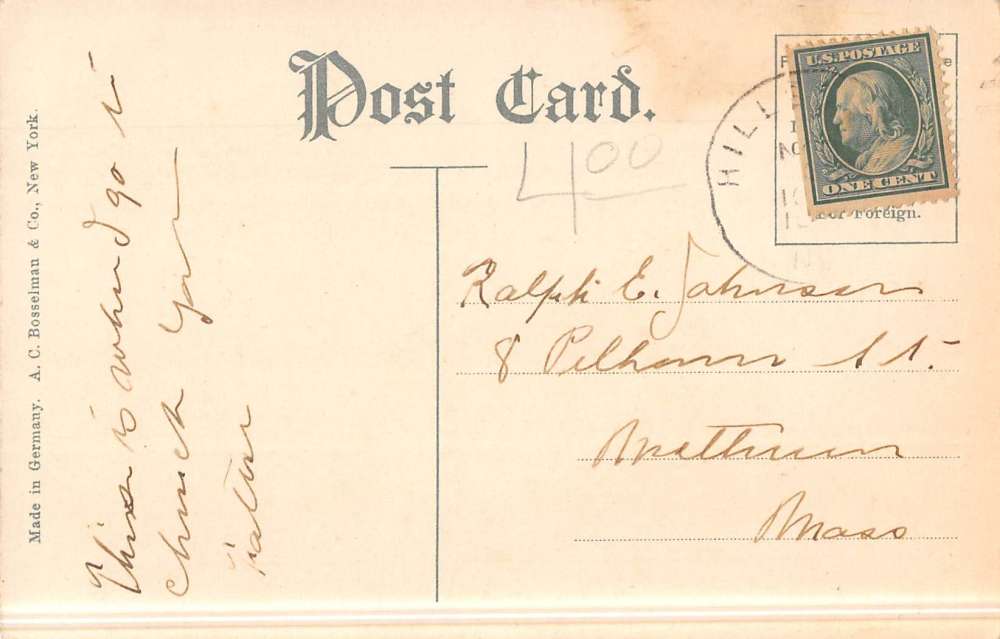 Post Card.
4 00
HILL
U.S. POSTAGE
ONE CENT
For Foreign.
Ralph E. Johnson
8 Pelham St.
Methuen
Mass
This is where I go to
church your
Father
Made in Germany. A. C. Bosselman & Co., New York.